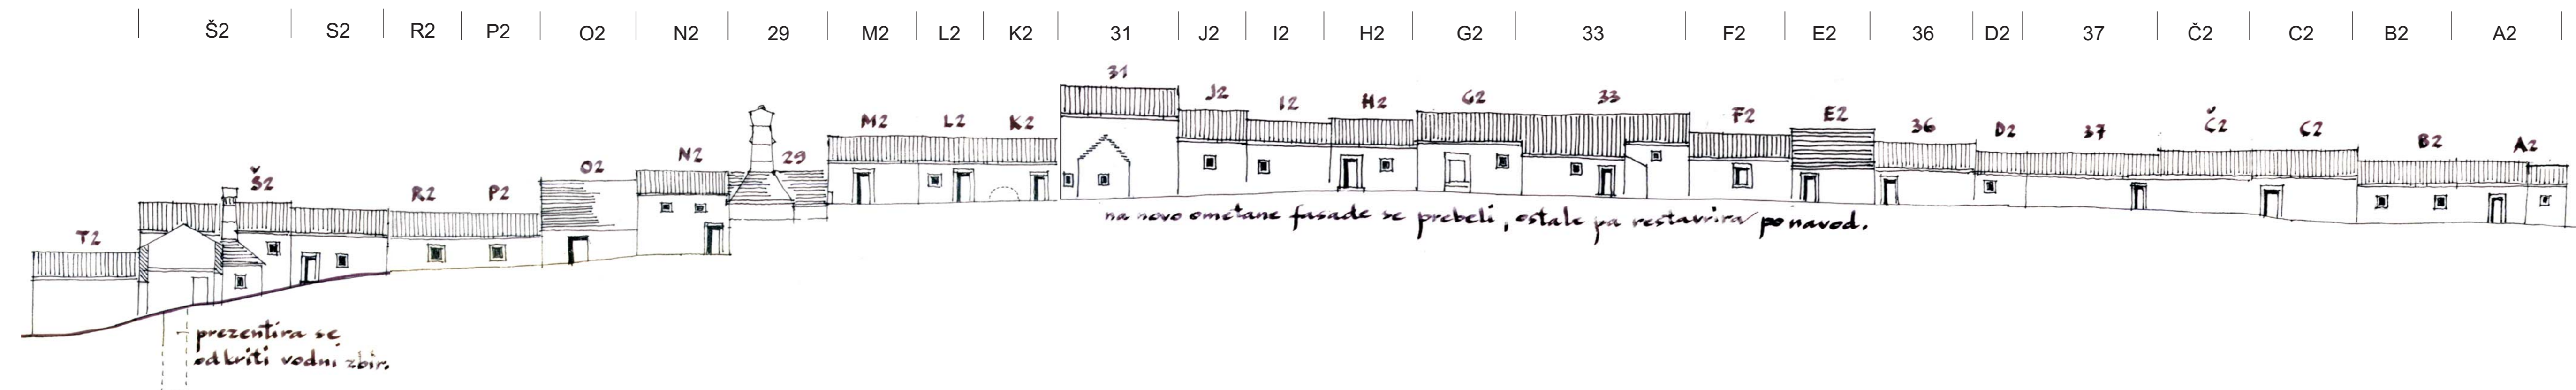 Š2 S2 R2 P2 O2 N2 29 M2 L2 K2 31 J2 I2 H2 G2 33 F2 E2 36 D2 37 Č2 C2 B2 A2
T2 Š2 R2 P2 O2 N2 29 M2 L2 K2 31 J2 I2 H2 G2 33 F2 E2 36 D2 37 Č2 C2 B2 A2
na novo ometane fasade se prebeli, ostale pa restavrira po navod.
prezentira se
odkriti vodni zbir.